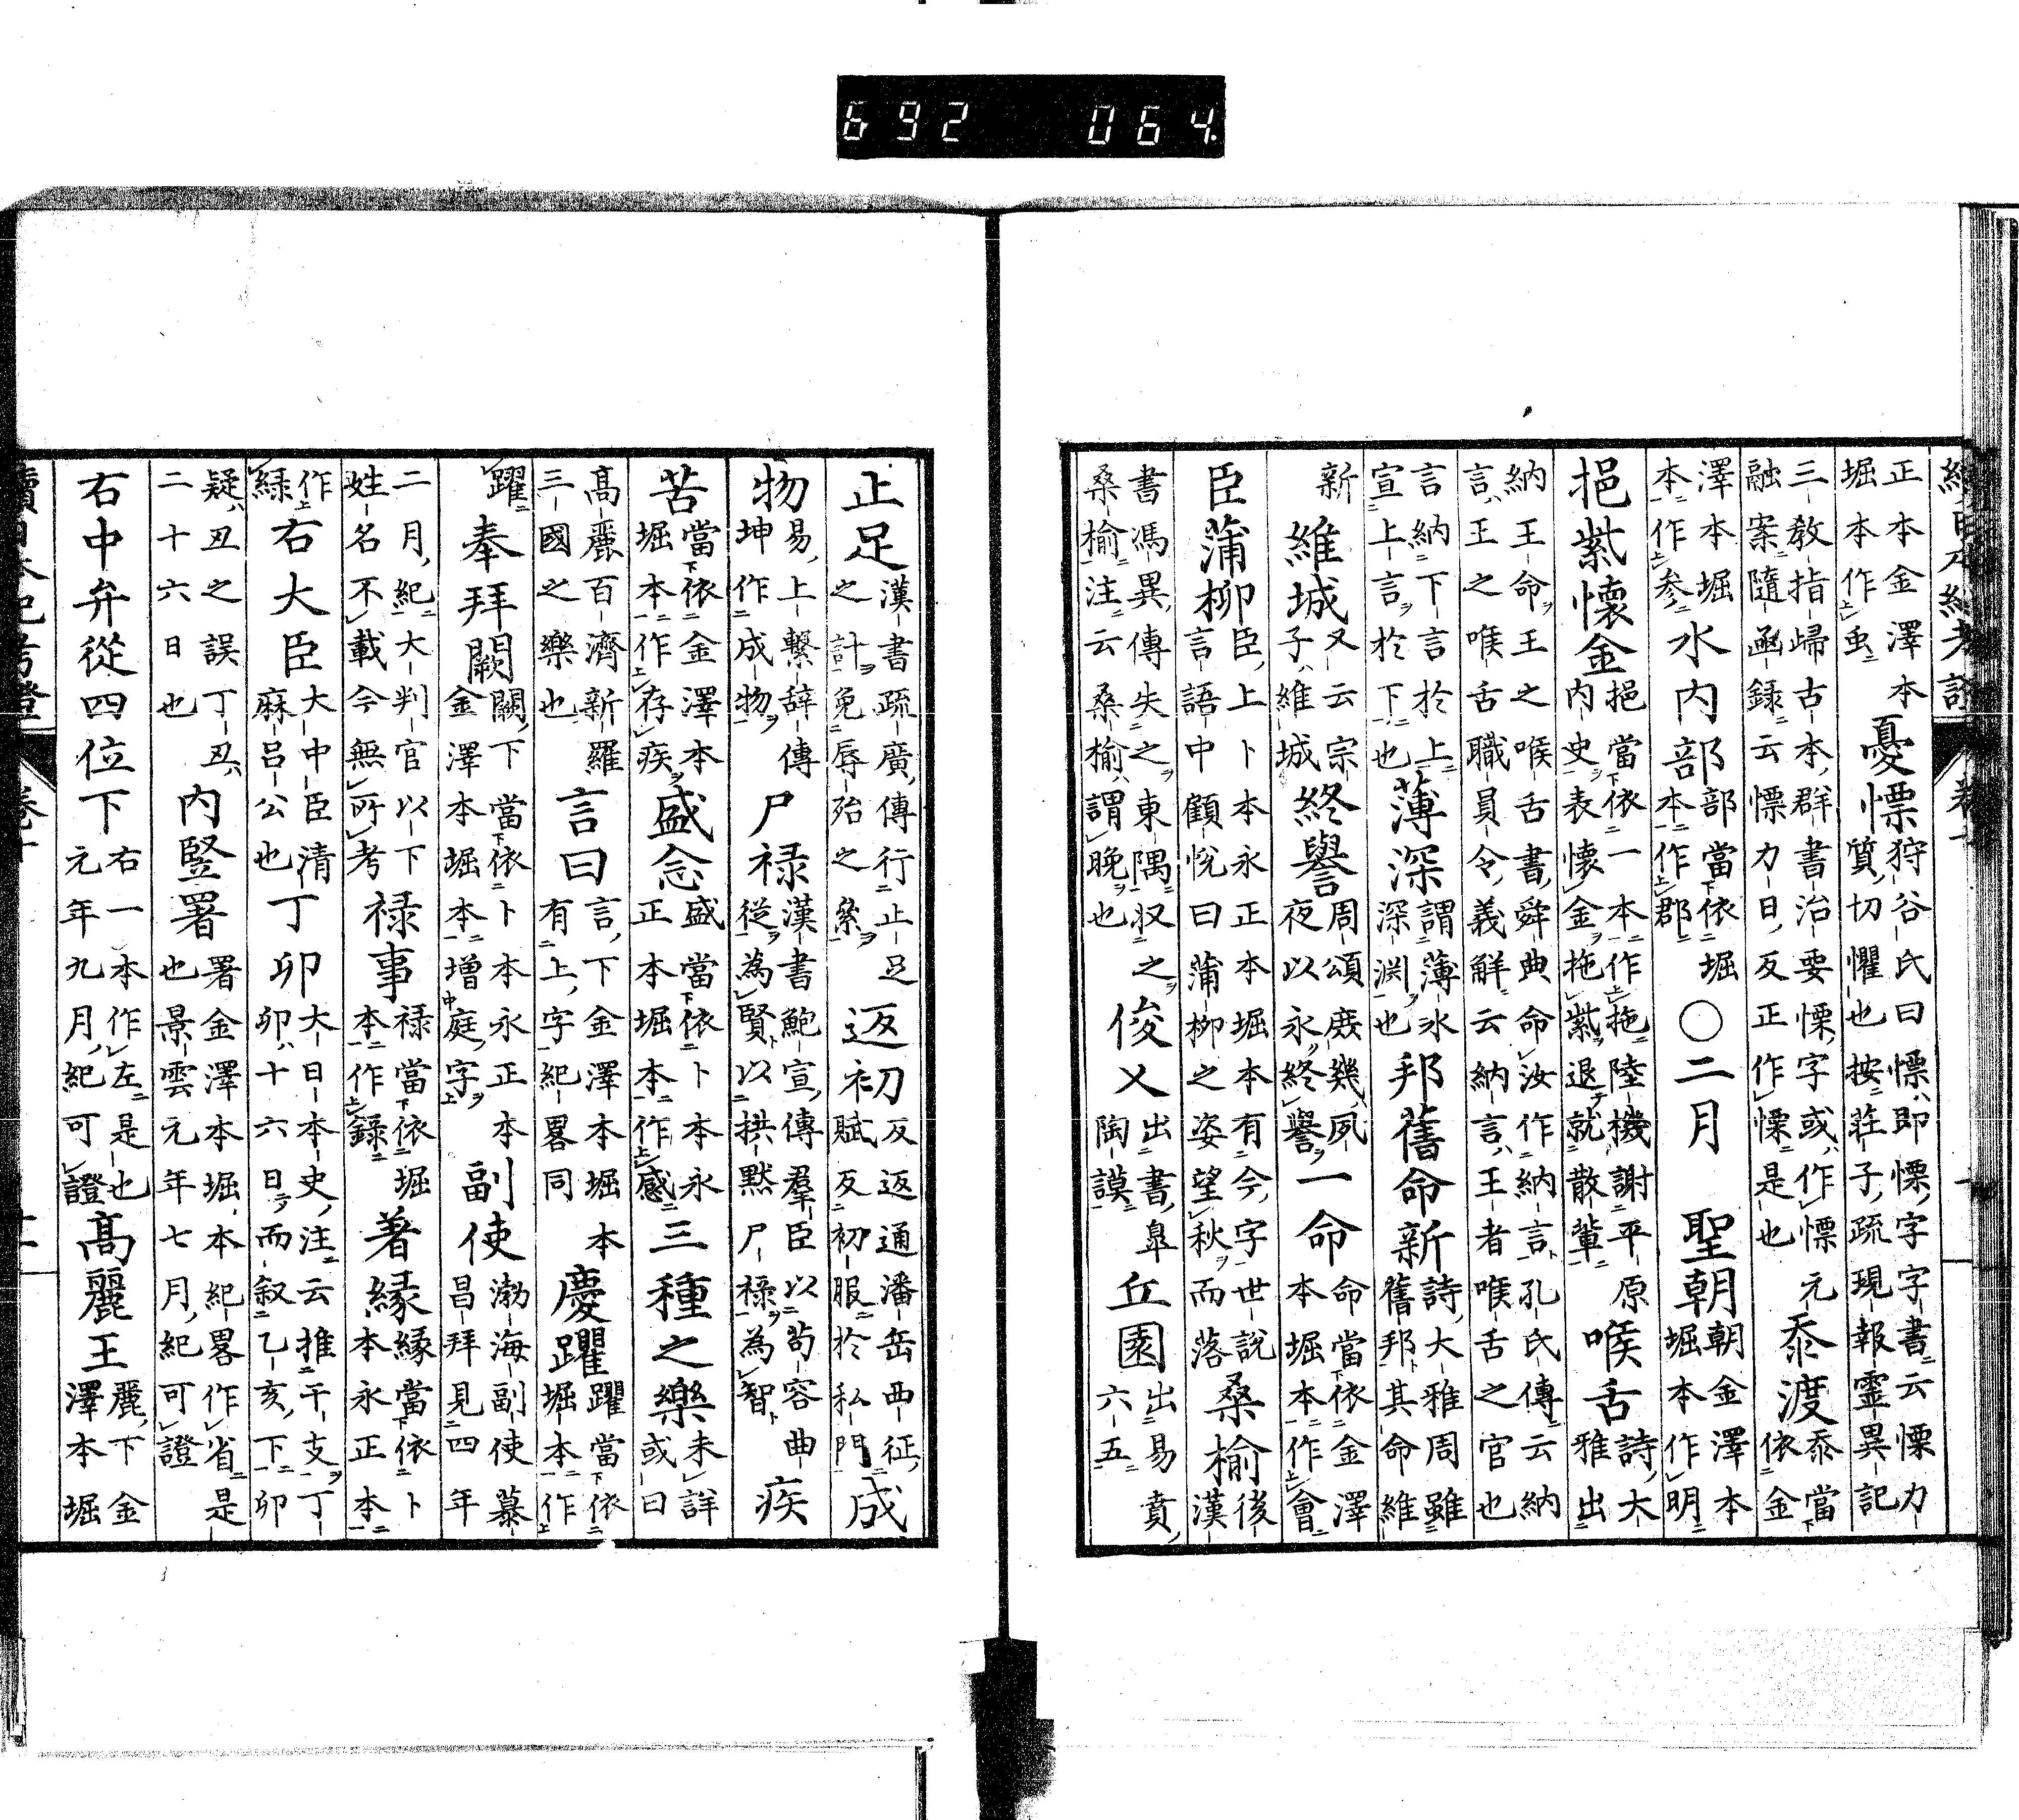 692 064
正本金澤本
堀本作虫憂慄狩谷氏曰慄即慄字字書云慄力
質切懼也按莊子疏現報靈異記
三教指歸古本群書治要慄字或作慓元
融案隨函録云慄力日反正作慄是也泰渡泰當
依金
澤本堀
本作参水内部部當依堀
本作郡〇二月 聖朝朝金澤本
堀本作明
挹紫懷金挹當依一本作拖陸機謝平原
内史表懷金拖紫退就散輩喉舌詩大
雅出
納王命王之喉舌書舜典命汝作納言孔氏傳云納
言王之喉舌職員令義解云納言王者喉舌之官也
言納下言於上
宣上言於下也薄深謂薄冰
深淵也邦舊命新詩大雅周雖
舊邦其命維
新維城又云宗
子維城終譽周頌庶幾夙
夜以永終譽一命命當依金澤
本堀本作會
臣蒲柳臣上卜本永正本堀本有今字世說
言語中顧悅曰蒲柳之姿望秋而落桑榆後
漢
書馮異傳失之東隅收之
桑榆注云桑榆謂晚也俊乂出書皐
陶謨丘園出易賁
六五
止足漢書疏廣傳行止足
之計免辱殆之累返初反返通潘岳西征
賦反初服於私門成
物易上繫辞傳
坤作成物尸禄漢書鮑宣傳羣臣以苟容曲
從為賢以拱黙尸祿為智疾
苦當依金澤本
堀本作存疾盛念盛當依卜本永
正本堀本作感三種之樂未詳
或曰
髙麗百濟新羅
三國之樂也言曰言下金澤本堀本
有上字紀畧同慶躍躍當依
堀本作
躍奉拜闕闕下當依卜本永正本
金澤本堀本增庭字副使渤海副使慕
昌拜見四年
二月紀大判官以下
姓名不載今無所考禄事禄當依堀
本作録著緣緣當依卜
本永正本
作
緑右大臣大中臣清
麻呂公也丁卯大日本史注云推干支丁
卯十六日而叙乙亥下卯
疑丑之誤丁丑
二十六日也内竪署署金澤本堀本紀畧作省是
也景雲元年七月紀可證
右中弁從四位下右一本作左是也
元年九月紀可證髙麗王麗下金
澤本堀